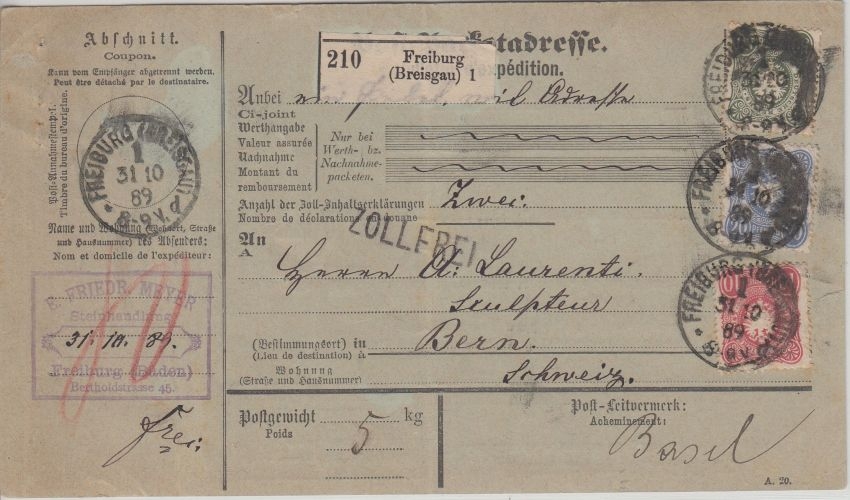 Abschnitt.
Coupon.
Kann vom Empfänger abgetrennt werden.
Peut être détaché par le destinataire.
Post-Annahmestempel.
Timbre du bureau d'origine.
FREIBURG (BREISGAU)
1
31 10
89
8-9 V.
Name und Wohnung (Wohnort, Straße
und Hausnummer) des Absenders:
Nom et domicile de l'expéditeur:
E. FRIEDR. MEYER
Steinhandlung
31. 10. 89.
Freiburg (Baden)
Bertholdstrasse 45.
frei
210 Freiburg
(Breisgau) 1
stadresse.
expédition.
Anbei ein Adresse
Ci-joint
Werthangabe
Valeur assurée
Nachnahme
Montant du
remboursement
Nur bei
Werth- bz.
Nachnahme-
packeten.
Anzahl der Zoll-Inhaltserklärungen Zwei.
Nombre de déclarations en douane
ZOLLFREI
An
A
Herrn A. Laurenti.
Sculpteur
(Bestimmungsort) in Bern.
(Lieu de destination) à
Wohnung
(Straße und Hausnummer)
Schweiz.
Postgewicht 5 kg
Poids
Post-Leitvermerk:
Acheminement:
Basel
A. 20.
FREIBURG
1
31 10
89
8-9 V.
FREIBURG
1
31 10
89
20
FREIBURG (BREISGAU)
1
31 10
89
8-9 V.
10